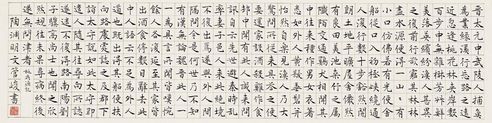 晉太元中武陵人捕魚
為業緣溪行忘路之遠
近忽逢桃花林夾岸數
百步中無雜樹芳草鮮
美落英繽紛漁人甚異
之復前行欲窮其林林
盡水源便得一山山有
小口仿佛若有光便捨
船從口入初極狹纔通
人復行數十步豁然開
朗土地平曠屋舍儼然
有良田美池桑竹之屬
阡陌交通雞犬相聞其
中往來種作男女衣著
悉如外人黃髮垂髫並
怡然自樂見漁人乃大
驚問所從來具答之便
要還家設酒殺雞作食
村中聞有此人咸來問
訊自云先世避秦時亂
率妻子邑人來此絕境
不復出焉遂與外人間
隔問今是何世乃不知
有漢無論魏晉此人一
一為具言所聞皆歎惋
餘人各復延至其家皆
出酒食停數日辭去此
中人語云不足為外人
道也既出得其船便扶
向路處處誌之及郡下
詣太守說如此太守即
遣人隨其往尋向所誌
遂迷不復得路南陽劉
子驥高尚士也聞之欣
然規往未果尋病終後
遂無問津者
陶淵明文管峻書